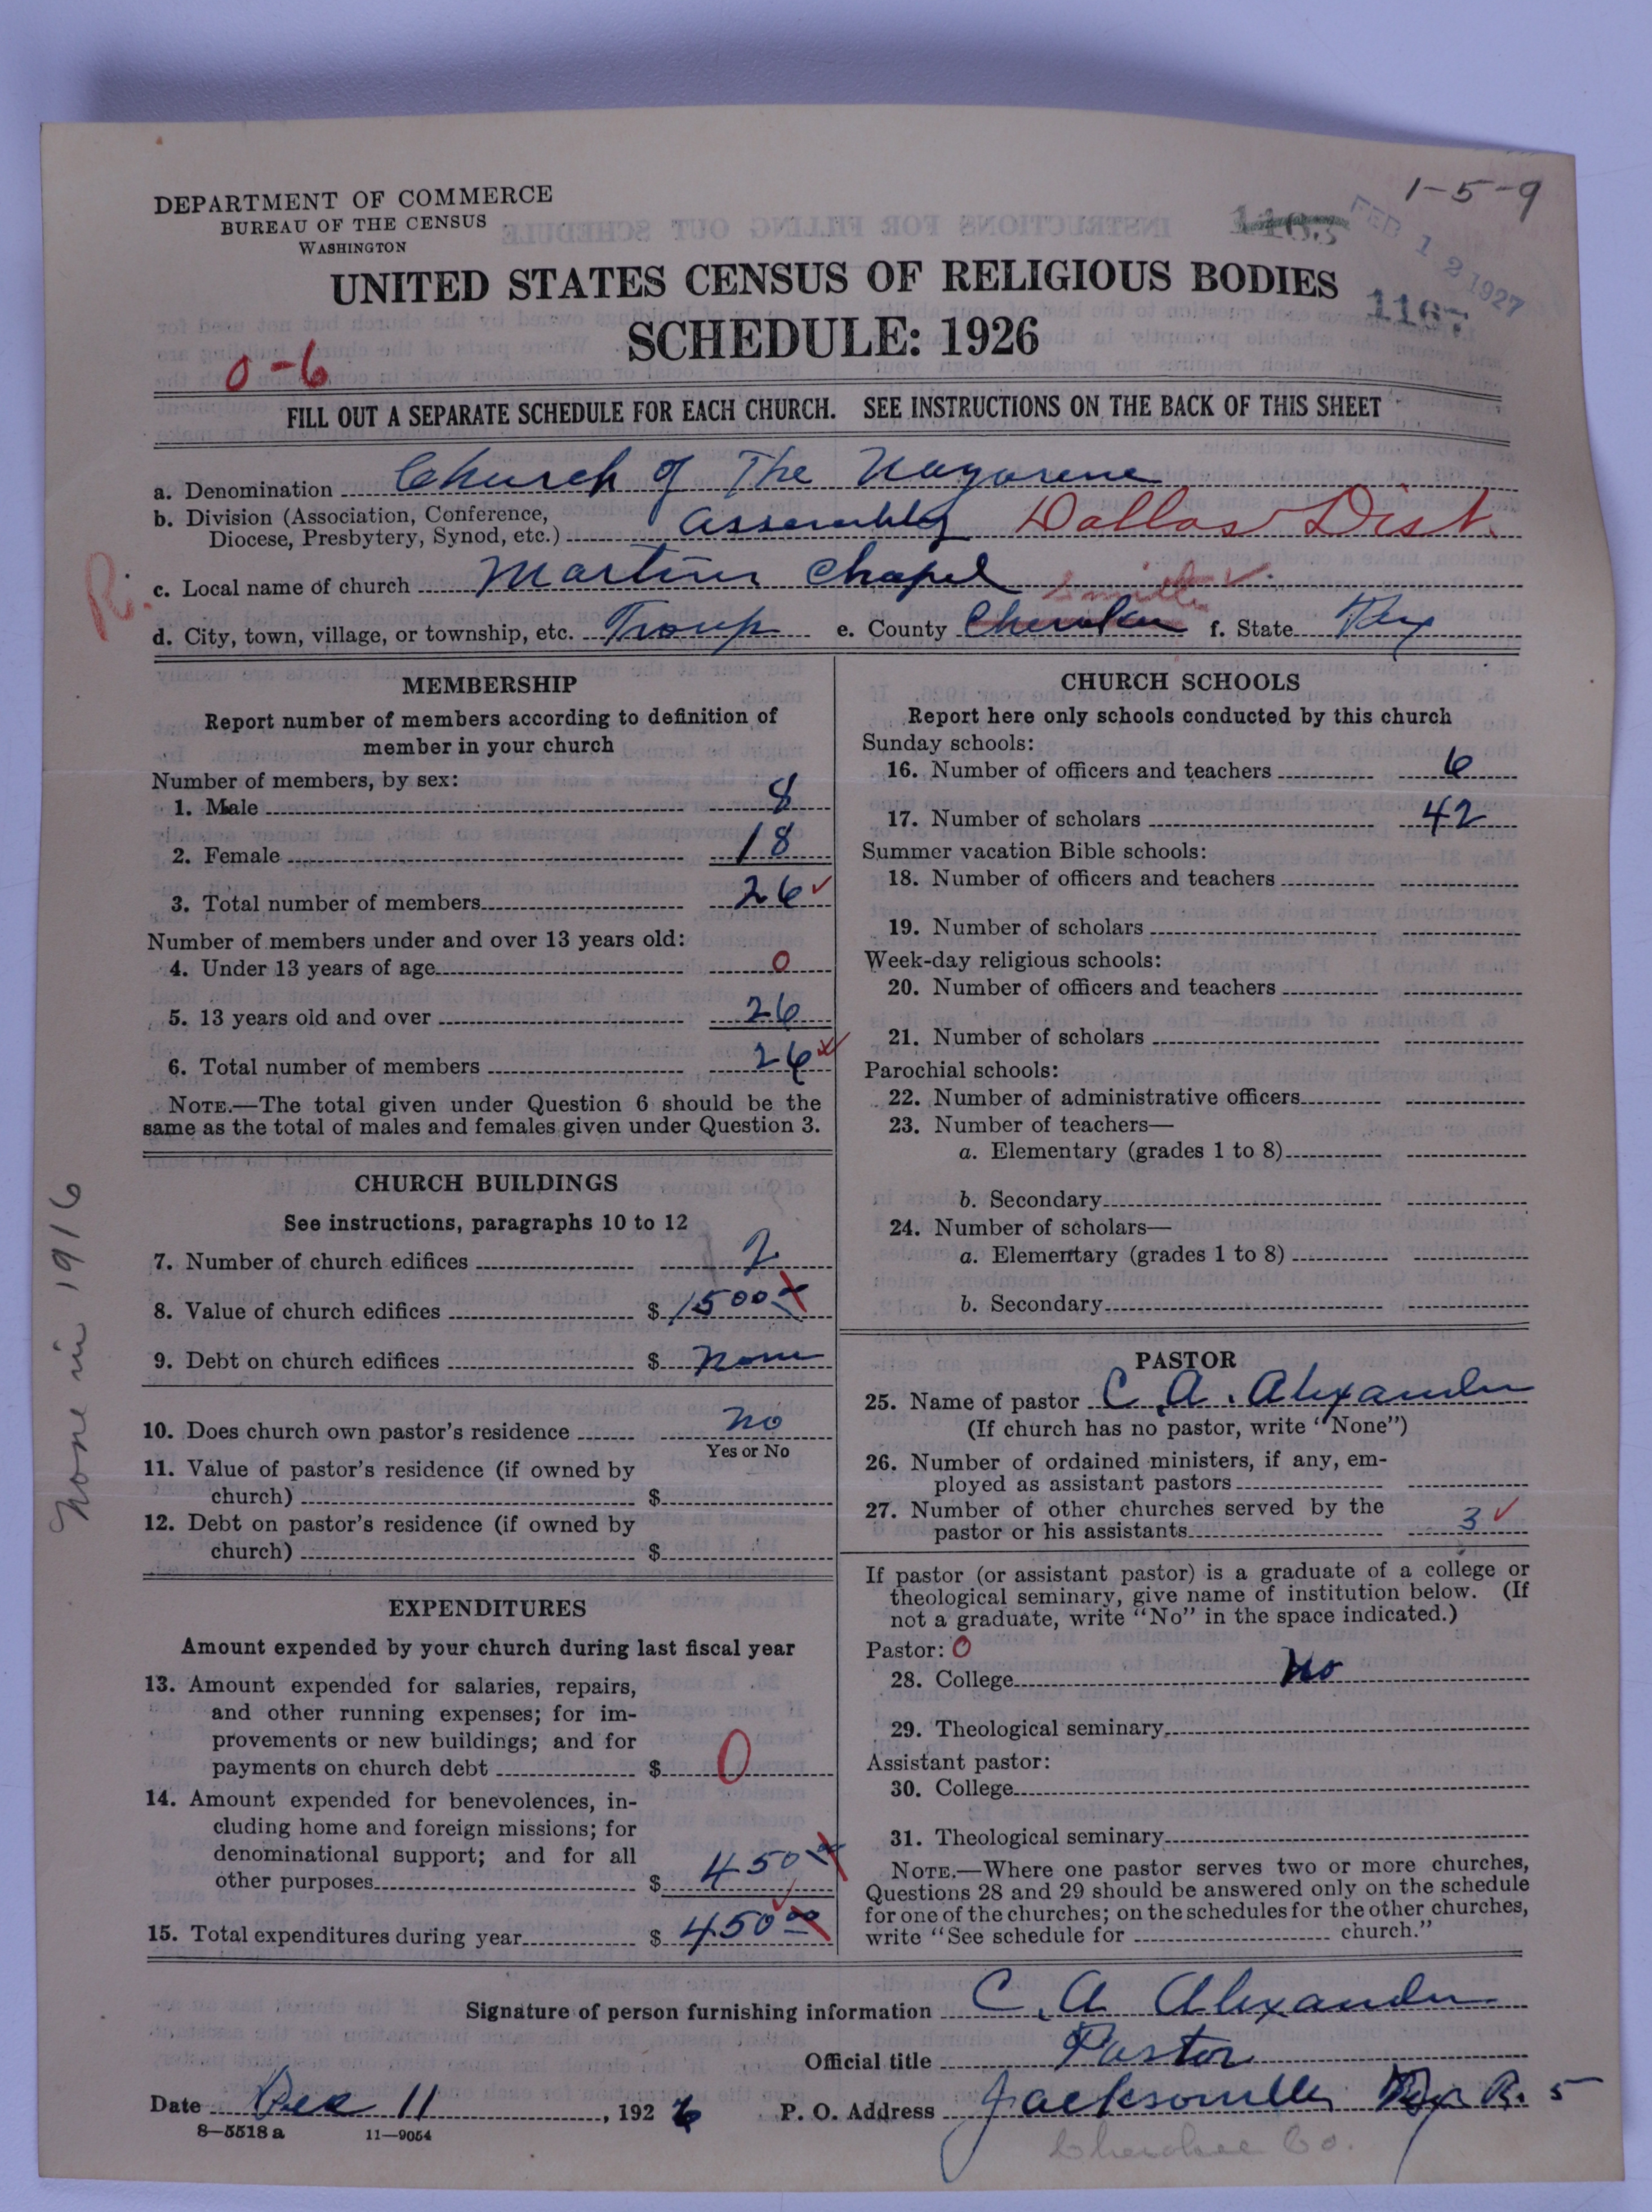 1-5-9
DEPARTMENT OF COMMERCE
BUREAU OF THE CENSUS
WASHINGTON
1163
FEB 12 1927
UNITED STATES CENSUS OF RELIGIOUS BODIES
1167
SCHEDULE: 1926
0-6
FILL OUT A SEPARATE SCHEDULE FOR EACH CHURCH. SEE INSTRUCTIONS ON THE BACK OF THIS SHEET
a. Denomination Church of The Nazarene
b. Division (Association, Conference, Diocese, Presbytery, Synod, etc.) Assembly Dallas Dist.
R.
c. Local name of church Martins Chapel
Smith ✓
d. City, town, village, or township, etc. Troup e. County Cherokee f. State Tex
MEMBERSHIP
Report number of members according to definition of
member in your church
Number of members, by sex:
1. Male 8
2. Female 18
3. Total number of members 26 ✓
Number of members under and over 13 years old:
4. Under 13 years of age 0
5. 13 years old and over 26
6. Total number of members 26
NOTE.—The total given under Question 6 should be the
same as the total of males and females given under Question 3.
CHURCH BUILDINGS
See instructions, paragraphs 10 to 12
7. Number of church edifices 2
8. Value of church edifices $ 1500
9. Debt on church edifices $ none
10. Does church own pastor's residence no
Yes or No
11. Value of pastor's residence (if owned by
church) $
12. Debt on pastor's residence (if owned by
church) $
none in 1916
EXPENDITURES
Amount expended by your church during last fiscal year
13. Amount expended for salaries, repairs,
and other running expenses; for im-
provements or new buildings; and for
payments on church debt $ 0
14. Amount expended for benevolences, in-
cluding home and foreign missions; for
denominational support; and for all
other purposes $ 450 00
15. Total expenditures during year $ 450 00
CHURCH SCHOOLS
Report here only schools conducted by this church
Sunday schools:
16. Number of officers and teachers 6
17. Number of scholars 42
Summer vacation Bible schools:
18. Number of officers and teachers
19. Number of scholars
Week-day religious schools:
20. Number of officers and teachers
21. Number of scholars
Parochial schools:
22. Number of administrative officers
23. Number of teachers—
a. Elementary (grades 1 to 8)
b. Secondary
24. Number of scholars—
a. Elementary (grades 1 to 8)
b. Secondary
PASTOR
25. Name of pastor C. A. Alexander
(If church has no pastor, write "None")
26. Number of ordained ministers, if any, em-
ployed as assistant pastors
27. Number of other churches served by the
pastor or his assistants 3 ✓
If pastor (or assistant pastor) is a graduate of a college or
theological seminary, give name of institution below. (If
not a graduate, write "No" in the space indicated.)
Pastor: 0
28. College No
29. Theological seminary
Assistant pastor:
30. College
31. Theological seminary
NOTE.—Where one pastor serves two or more churches,
Questions 28 and 29 should be answered only on the schedule
for one of the churches; on the schedules for the other churches,
write "See schedule for church."
Signature of person furnishing information C. A Alexander
Official title Pastor
Date Dec 11, 1926 P. O. Address Jacksonville Tex R. 5
8-5518 a 11-9054
Cherokee Co.